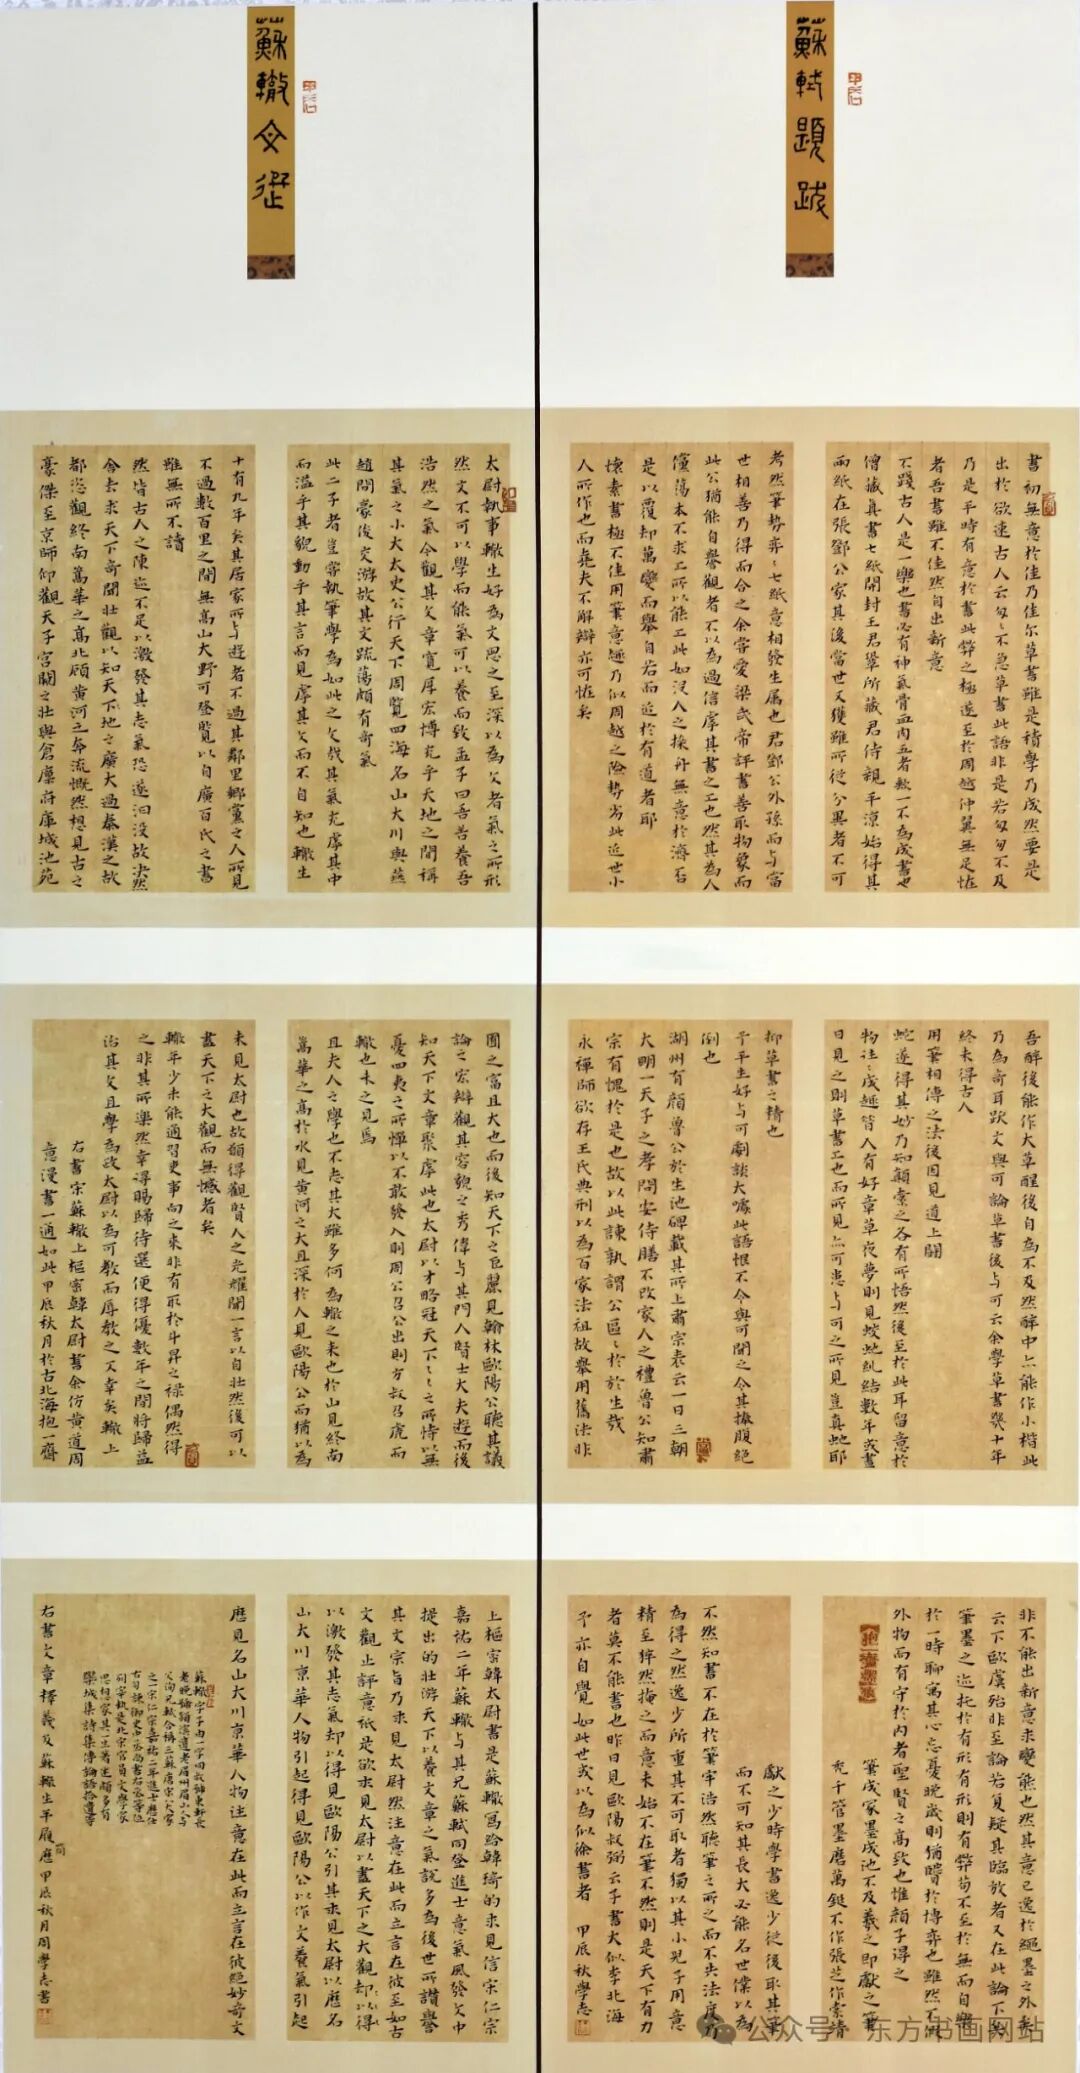 蘇軾題跋
書初無意於佳乃佳尔草書雖是積學乃成然要是
出於欲速古人云匆〻不急草書此語非是若匆匆不及
乃是平時有意於書此弊之極遂至於周越仲翼無足怪
者吾書雖不佳然自出新意
不踐古人是一樂也書必有神氣骨血肉五者缺一不為成書也
僧藏真書七紙開封王君鞏所藏君侍親平涼始得其
兩紙在張鄧公家其後當世又獲雖所從分異者不可
考然筆勢弈〻七紙意相發生屬也君鄧公外孫而与當
世相善乃得而合之余嘗愛梁武帝評書善取物象而
此公猶能自譽觀者不以為過信虖其書之工也然其為人
儻蕩本不求工所以能工此如沒人之操舟無意於濟否
是以覆却萬變而舉自若而近於有道者耶
懷素書極不佳用筆意趣乃似周越之險勢劣此近世小
人所作也而堯夫不解辯亦可怪矣
吾醉後能作大草醒後自為不及然醉中亦能作小楷此
乃為奇耳跋文與可論草書後与可云余學草書幾十年
終未得古人
用筆相傳之法後因見道上鬪
蛇遂得其妙乃知顛素之各有所悟然後至於此耳留意於
物往〻成趣昔人有好章草夜夢則見蛟蛇糾結數年或晝
日見之則草書工也而所見亦可患与可之所見豈真蛇耶
抑草書之精也
予平生好与可劇談大噱此語恨不令與可聞之令其撫腹絕
倒也
湖州有顏魯公於生池碑載其所上肅宗表云一日三朝
大明一天子之孝問安侍膳不改家人之禮魯公知肅
宗有愧於是也故以此諫孰謂公區〻於於生哉
永禪師欲存王氏典刑以為百家法祖故舉用舊法非
非不能出新意求變態也然其意已逸於繩墨之外矣
云下歐虞殆非至論若复疑其臨放者又在此論下矣
筆墨之迹托於有形有形則有弊苟不至於無而自樂
於一時聊寓其心忘憂晚歲則猶賢於博弈也雖然不假
外物而有守於內者聖賢之高致也惟顏子得之
筆成冢墨成池不及羲之即獻之筆
禿千管墨磨萬鋌不作張芝作索靖
獻之少時學書逸少從後取其筆
而不可知其長大必能名世僕以為
不然知書不在於筆牢浩然聽筆之所之而不失法度乃
為得之然逸少所重其不可取者獨以其小兒子用意
精至猝然掩之而意未始不在筆不然則是天下有力
者莫不能書也昨日見歐陽叔弼云子書大似李北海
予亦自覺如此世或以為似徐書者 甲辰秋學志
蘇轍文選
太尉執事轍生好為文思之至深以為文者氣之所形
然文不可以學而能氣可以養而致孟子曰吾善養吾
浩然之氣今觀其文章寬厚宏博充乎天地之間稱
其氣之小大太史公行天下周覽四海名山大川與燕
趙間豪俊交游故其文疏蕩頗有奇氣
此二子者豈嘗執筆學為如此之文哉其氣充虖其中
而溢乎其貌動乎其言而見虖其文而不自知也轍生
十有九年矣其居家所与遊者不過其鄰里鄉黨之人所見
不過數百里之間無高山大野可登覽以自廣百氏之書
雖無所不讀
然皆古人之陳迹不足以激發其志氣恐遂汩没故决然
舍去求天下奇聞壯觀以知天下地之廣大過秦漢之故
都恣觀終南嵩華之高北顧黃河之奔流慨然想見古之
豪傑至京師仰觀天子宮闕之壯與倉廩府庫城池苑
囿之富且大也而後知天下之巨麗見翰林歐陽公聽其議
論之宏辯觀其容貌之秀偉与其門人賢士大夫遊而後
知天下文章聚虖此也太尉以才略冠天下天下之所恃以無
憂四夷之所憚以不敢發入則周公召公出則方叔召虎而
轍也未之見焉
且夫人之學也不志其大雖多何為轍之来也於山見終南
嵩華之高於水見黃河之大且深於人見歐陽公而猶以為
未見太尉也故願得觀賢人之光耀聞一言以自壯然後可以
盡天下之大觀而無憾者矣
轍年少未能通習吏事向之来非有取於斗昇之祿偶然得
之非其所樂然幸得賜歸待選便得優數年之間將歸益
治其文且學為政太尉以為可教而辱教之又幸矣轍上
右書宗蘇轍上樞密韓太尉書余仿黄道周
意漫書一通如此甲辰秋月於古北海抱一齋
上樞密韓太尉書是蘇轍寫給韓琦的求見信宗仁宗
嘉祐二年蘇轍与其兄蘇軾同登進士意氣風發文中
提出的壯游天下以養文章之氣說多為後世所讚譽
其文宗旨乃求見太尉然注意在此而立言在彼至如古
文觀止評意祇是欲求見太尉以盡天下之大觀以得
以激發其志氣却以得見歐陽公引其求見太尉以歷名
山大川京華人物引起得見歐陽公以作文養氣引起
歷見名山大川京華人物注意在此而立言在彼絕妙奇文
蘇轍字子由一字同叔號東軒長
老晚號潁濱遺老眉州眉山人与
父洵兄軾合稱三蘇唐宋八大家
之一宗仁宗嘉祐二年進士歷任
右司諫御史中丞尚書右丞等位
列宰執是北宗官員文學家
思想家其一生著述頗多有
欒城集詩集傳論語拾遺等
右書文章釋義及蘇轍生平履歷甲辰秋月周學志書
公众号 东方书画网站